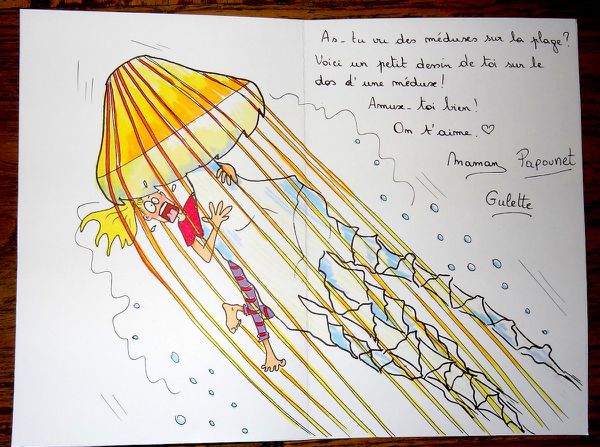 As-tu vu des méduses sur la plage?
Voici un petit dessin de toi sur le
dos d'une méduse!
Amuse-toi bien!
On t'aime. ♡
Maman Papounet
Gulette